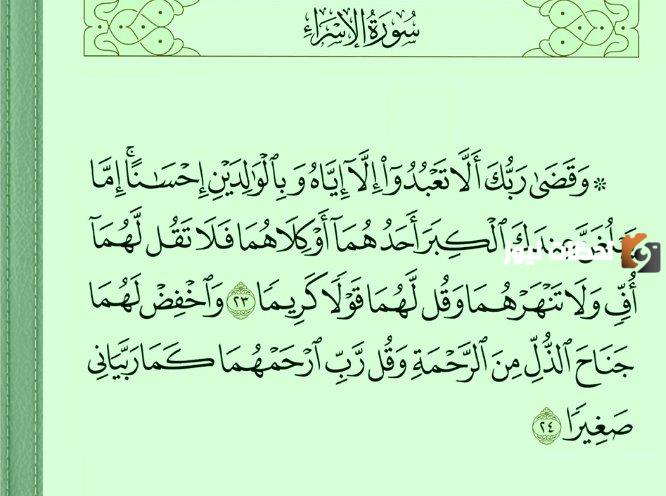 سُورَةُ الإِسْرَاءِ
۞ وَقَضَىٰ رَبُّكَ أَلَّا تَعْبُدُوٓا۟ إِلَّآ إِيَّاهُ وَبِٱلْوَٰلِدَيْنِ إِحْسَـٰنًا ۚ إِمَّا
يَبْلُغَنَّ عِندَكَ ٱلْكِبَرَ أَحَدُهُمَآ أَوْ كِلَاهُمَا فَلَا تَقُل لَّهُمَآ
أُفٍّ وَلَا تَنْهَرْهُمَا وَقُل لَّهُمَا قَوْلًا كَرِيمًا ٢٣ وَٱخْفِضْ لَهُمَا
جَنَاحَ ٱلذُّلِّ مِنَ ٱلرَّحْمَةِ وَقُل رَّبِّ ٱرْحَمْهُمَا كَمَا رَبَّيَانِى
صَغِيرًا ٢٤